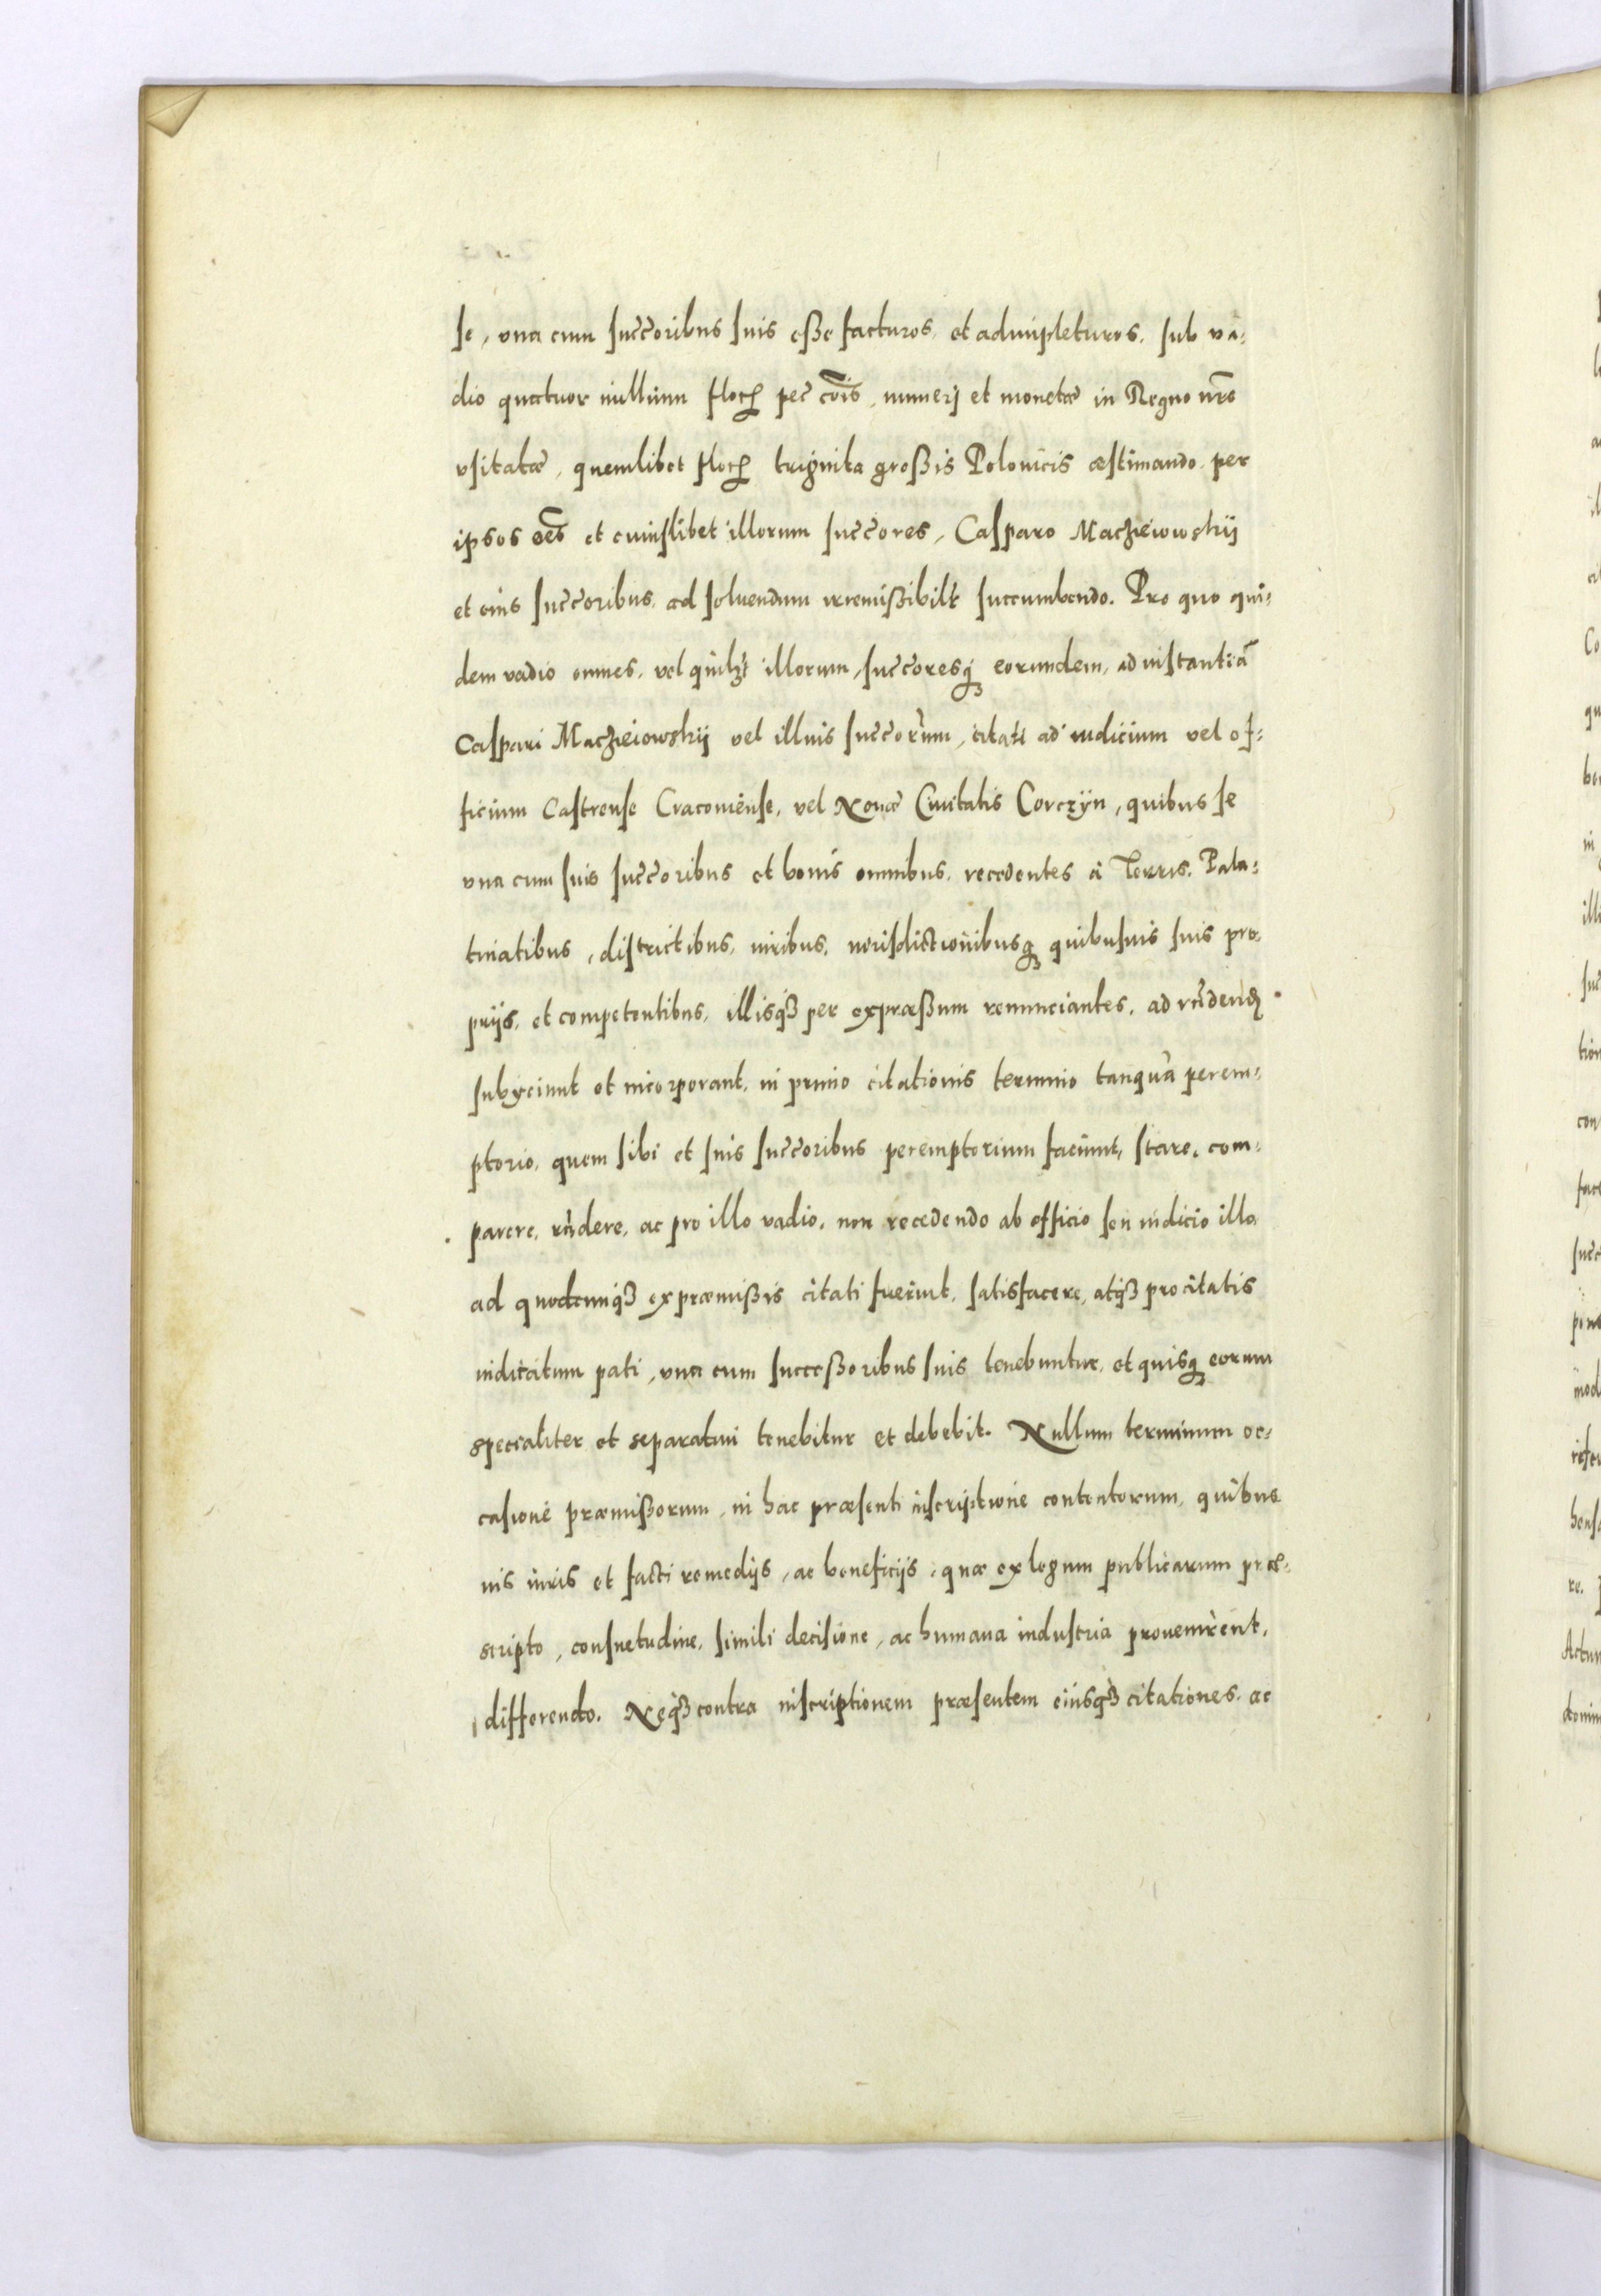 se, vna cum succoribus suis esse facturos, et adimpleturos, sub va-
dio quatuor millium floren pec cois, numerj et monetae in Regno nro
vsitatae, quemlibet floren triginta grossis Polonicis aestimando, per
ipsos oes et cuiuslibet illorum succores, Casparo Maczieiowskij
et eius succoribus, ad soluendum irremissibilr succumbendo. Pro quo qui-
dem vadio omnes, vel quilzt illorum, succoresq eorundem, ad instantiā
Caspari Maczieiowskij vel illius succorum, citati ad iudicium vel of-
ficium Castrense Cracouiense, vel Nouae Ciuitatis Corczÿn, quibus se
vna cum suis succoribus et bonis omnibus, recedentes à Terris, Pala-
tinatibus, districtibus, iuribus, iurisdictionibusq quibusuis suis pro-
prijs, et competentibus, illisq3 per expraessum renunciantes, ad rndend
subijciunt et incorporant, in primo citationis termino tanquā perem-
ptorio, quem sibi et suis succoribus peremptorium faciunt, stare, com-
parere, rndere, ac pro illo vadio, non recedendo ab officio seu iudicio illo,
ad quodcunq3 ex praemissis citati fuerint, satisfacere, atq3 pro citatis
iudicatum pati, vna cum successoribus suis tenebuntur, et quisq eorum
specialiter et separatim tenebitur et debebit. Nullum terminum oc-
casione praemissorum, in hac praesenti inscriptione contentorum, quibus
uis iuris et facti remedijs, ac beneficijs, quae ex legum publicarum prae-
scripto, consuetudine, simili decisione, ac humana industria prouenirent,
differendo. Neq3 contra inscriptionem praesentem eiusq3 citationes, ac